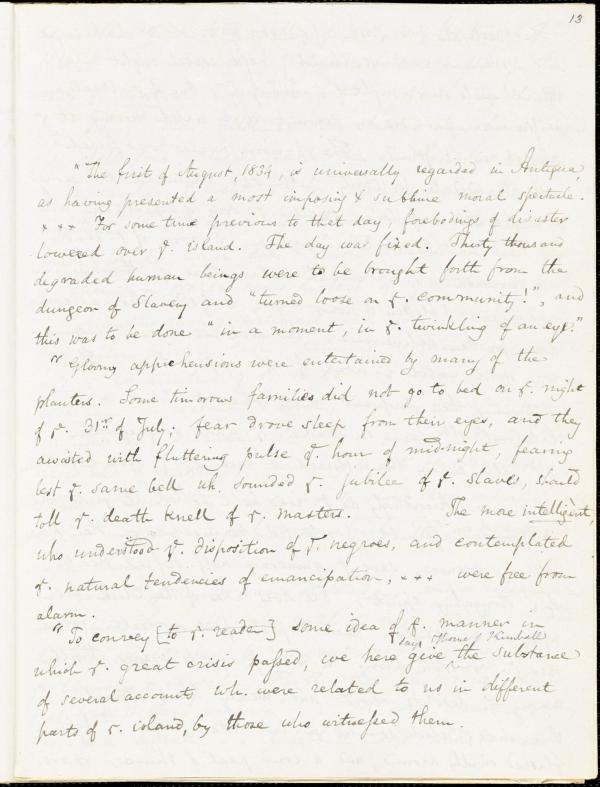 13
"The first of August, 1834, is universally regarded in Antigua,
as having presented a most imposing & sublime moral spectacle.
× × × For some time previous to that day, forebodings of disaster
lowered over ye. island. The day was fixed. Thirty thousand
degraded human beings were to be brought forth from the
dungeon of Slavery and "turned loose on ye. community!", and
this was to be done "in a moment, in ye. twinkling of an eye."
"Gloomy apprehensions were entertained by many of the
planters. Some timorous families did not go to bed on ye. night
of ye. 31st of July; fear drove sleep from their eyes, and they
awaited with fluttering pulse ye. hour of midnight, fearing
lest ye. same bell wh. sounded ye. jubilee of ye. slaves, should
toll ye. death knell of ye. masters. The more intelligent,
who understood ye. disposition of ye. negroes, and contemplated
ye. natural tendencies of emancipation, × × × were free from
alarm.
"To convey [to ye. reader] some idea of ye. manner in
say Thome & Kimball
which ye. great crisis passed, we here give the substance
of several accounts wh. were related to us in different
parts of ye. island, by those who witnessed them.